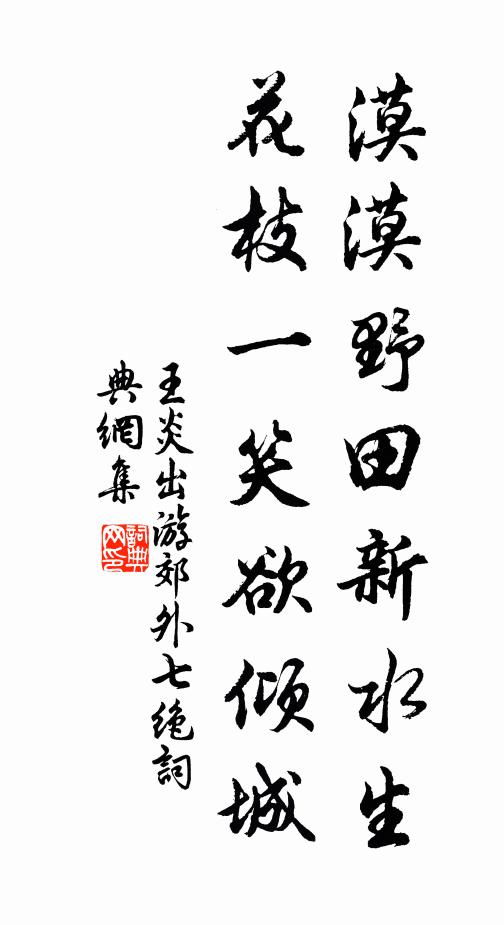 漠漠野田新水生
花枝一笑欲倾城
王炎出游郊外七绝詞
典網集
詞典
网印